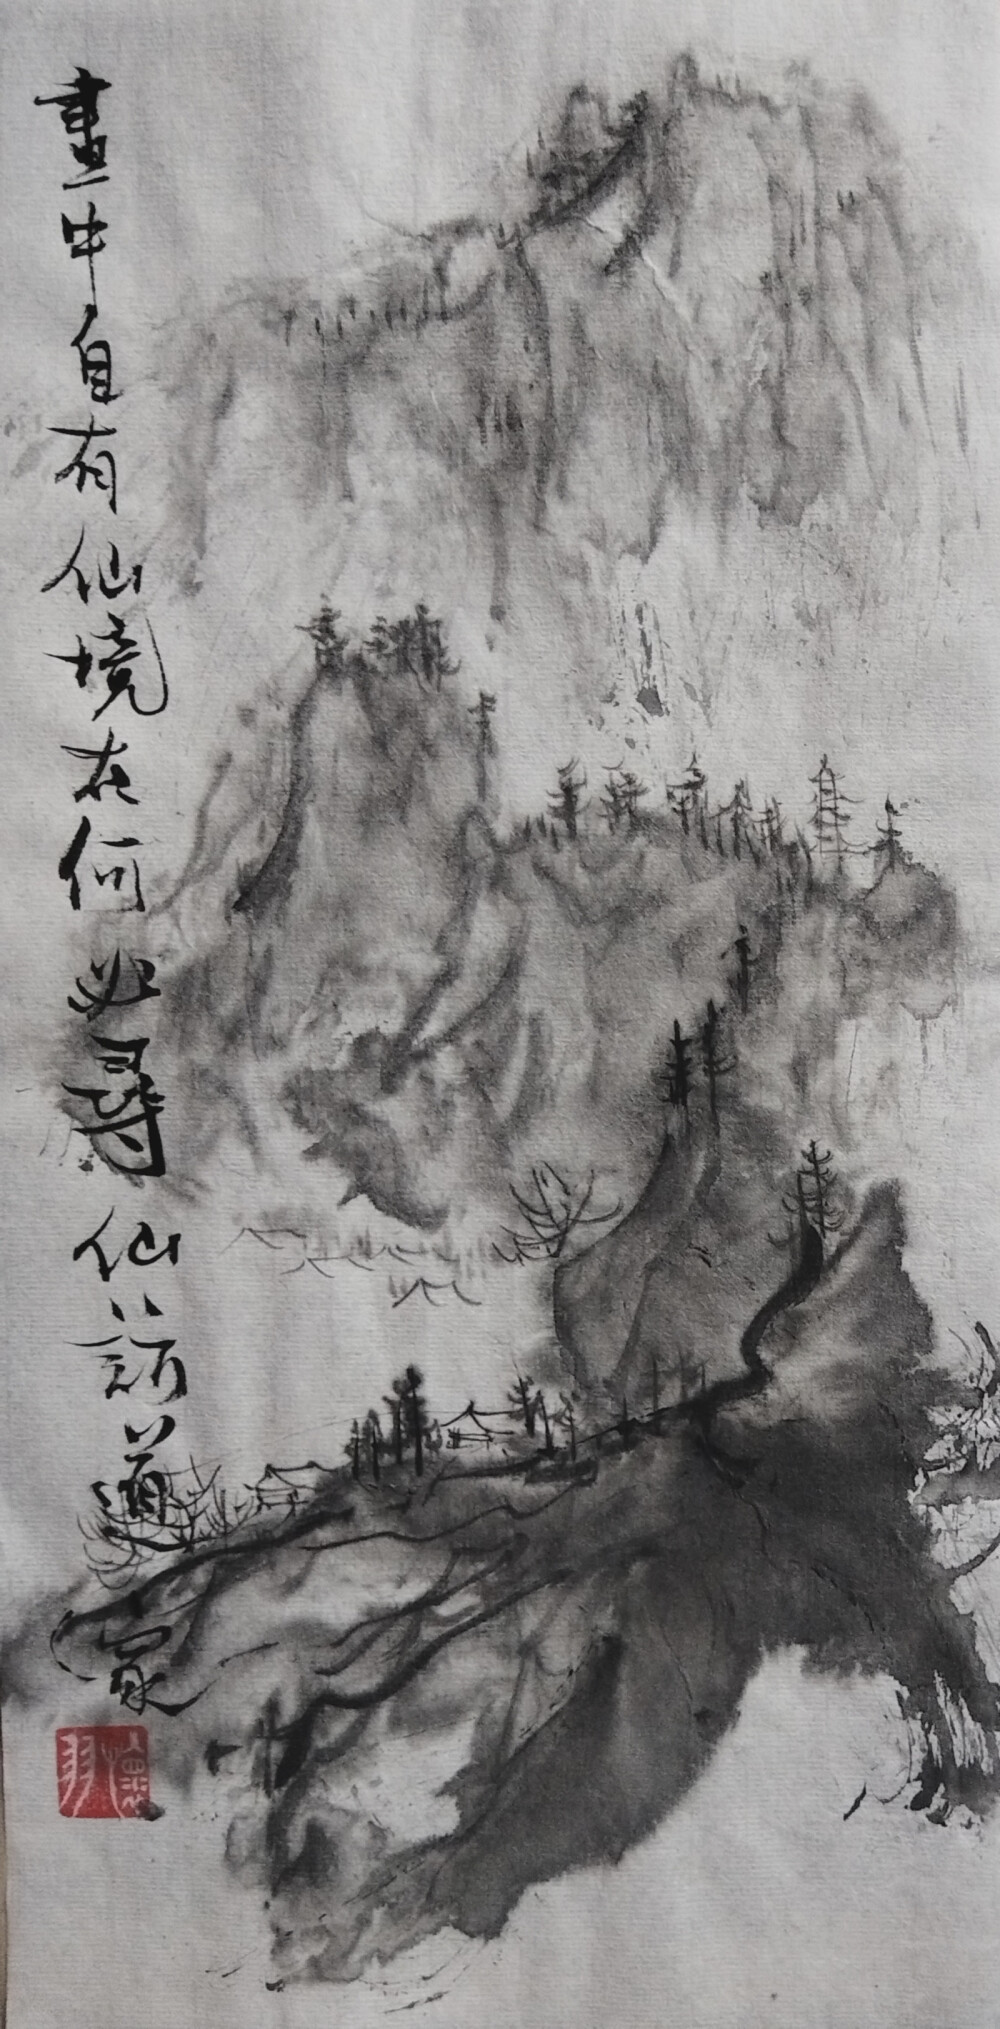 畫中自有仙境在何必尋仙訪道家